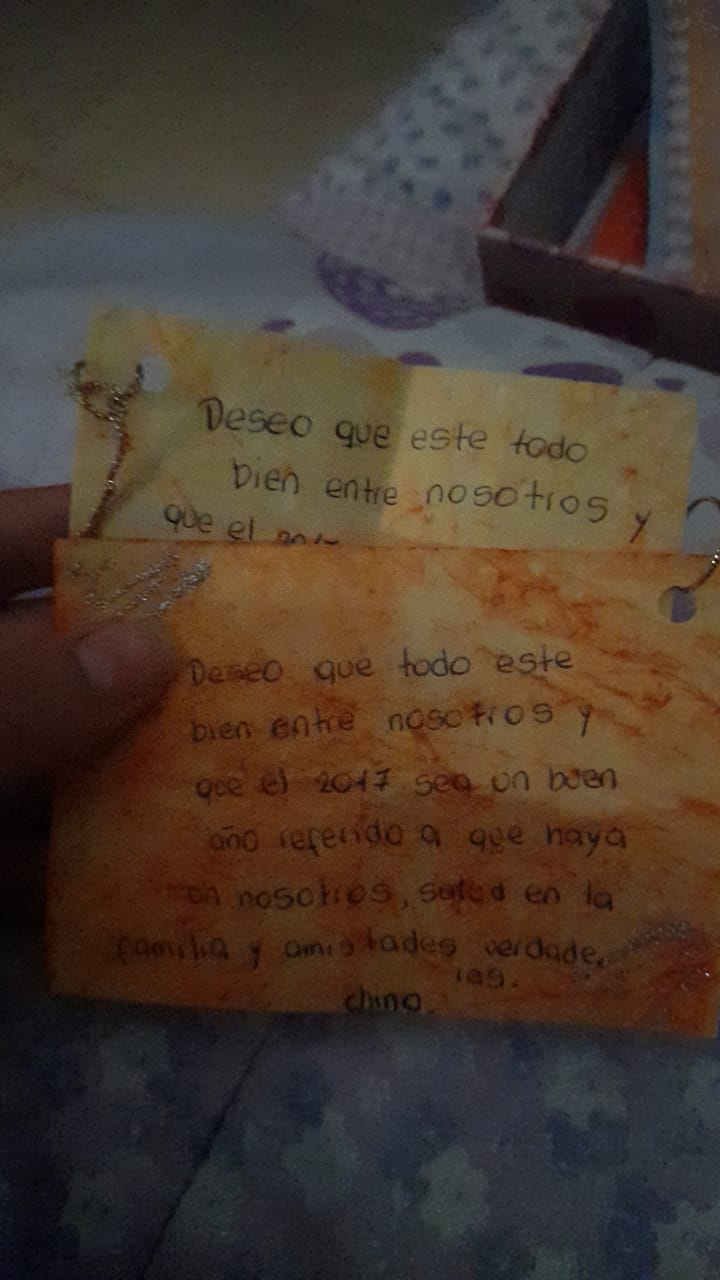 Deseo que este todo
bien entre nosotros y
que el
Deseo que todo este
bien entre nosotros y
que el 2017 sea un buen
año referido a que haya
un nosotros, salud en la
familia y amistades verdade.
ras.
chino.